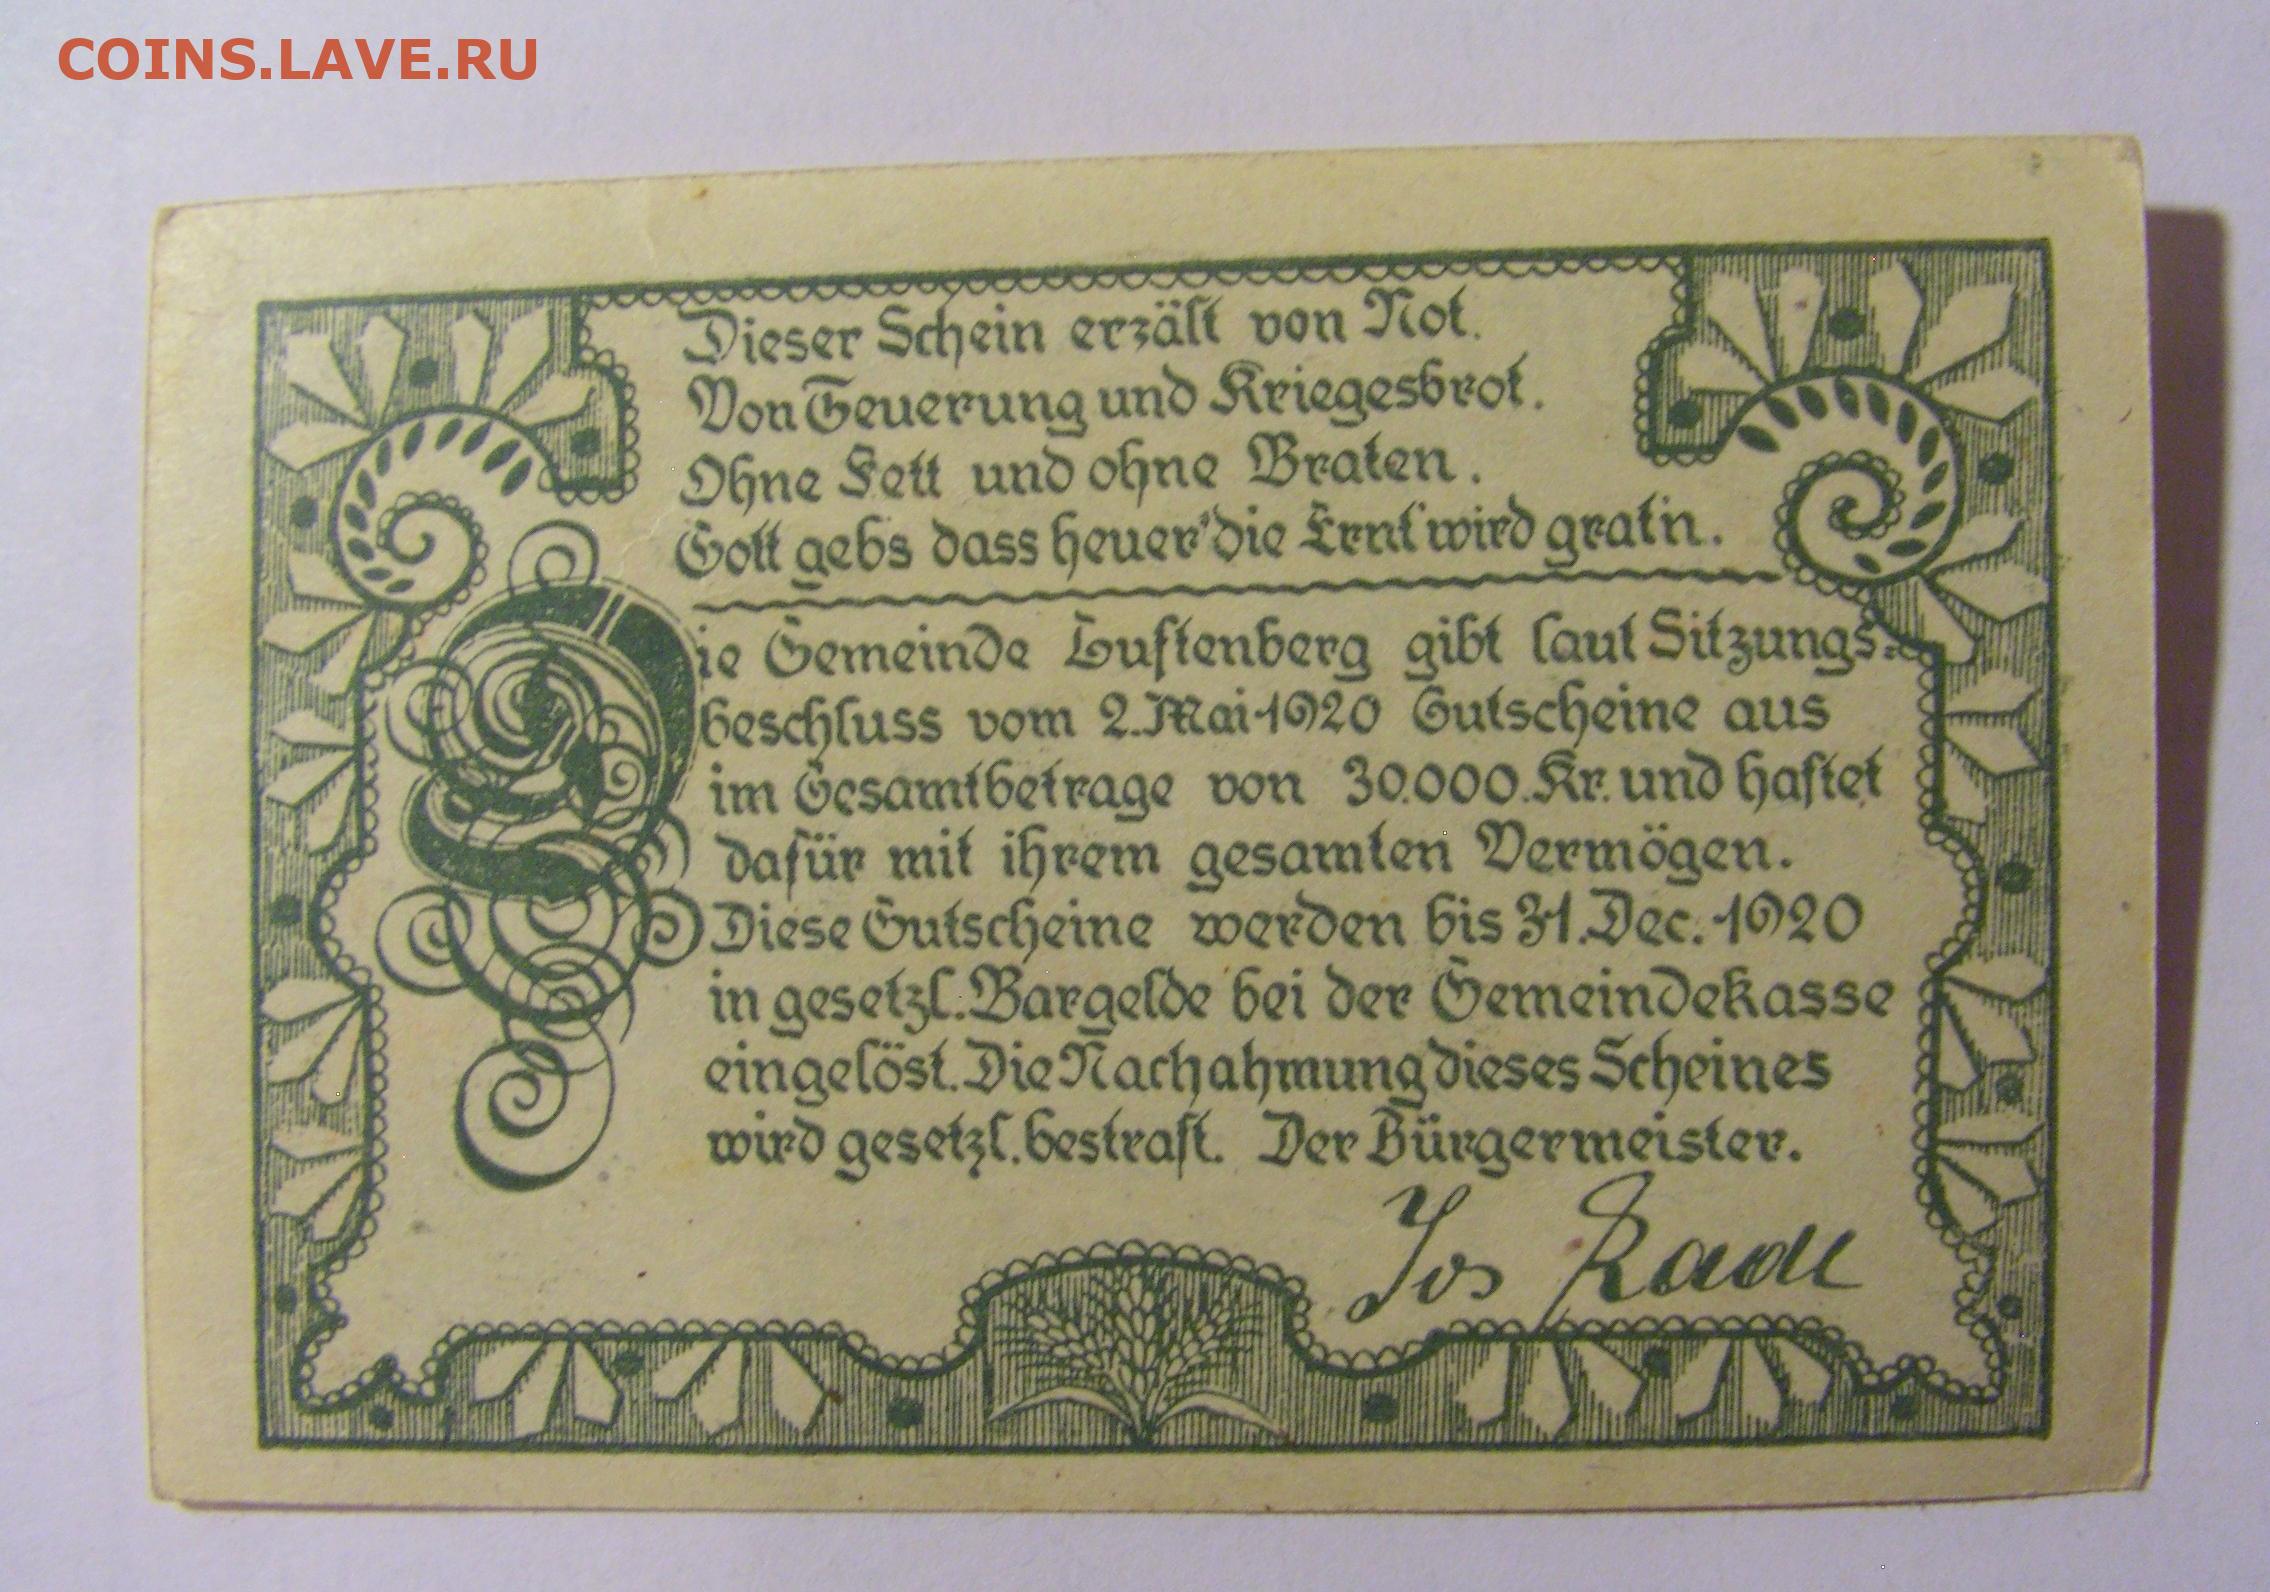 COINS.LAVE.RU
Dieser Schein erzält von Not.
Von Teuerung und Kriegesbrot.
Ohne Fett und ohne Braten.
Gott gebs dass heuer die Ernt' wird gratn.
Die Gemeinde Luftenberg gibt laut Sitzungs-
beschluss vom 2. Mai 1920 Gutscheine aus
im Gesamtbetrage von 30.000.Kr. und haftet
dafür mit ihrem gesamten Vermögen.
Diese Gutscheine werden bis 31. Dec. 1920
in gesetzl. Bargelde bei der Gemeindekasse
eingelöst. Die Nachahmung dieses Scheines
wird gesetzl. bestraft. Der Bürgermeister.
Jos